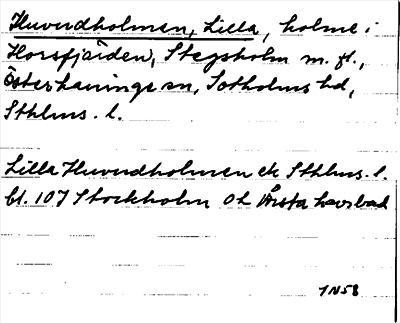 Huvudholmen, Lilla, holme i
Horsfjärden, Stegsholm m. fl.,
Österhanings sn, Sotholms hd,
Sthlms. l.
Lilla Huvudholmen ek Sthlms. l.
bl. 107 Stockholm OL Årsta havsbad
1N58